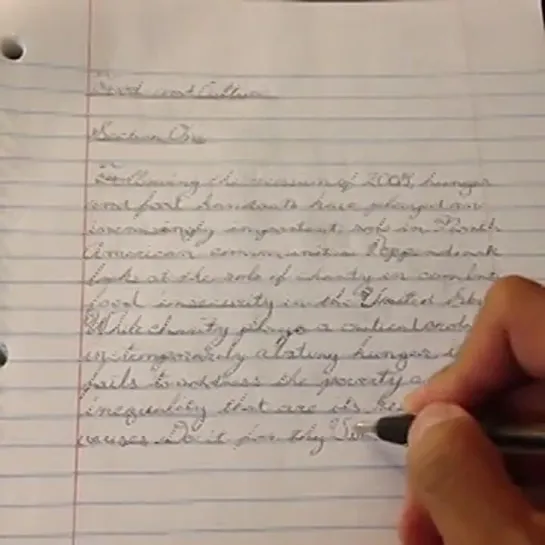 Food and Culture
Section One
Following the recession of 2008, hunger
and food handouts have played an
increasingly important role in North
American communities. Poppendieck
look at the role of charity in combat
food insecurity in the United Sta
While charity plays a critical role
in temporarily abating hunger i
fails to address the poverty a
inequality that are its
causes. Do it for thy